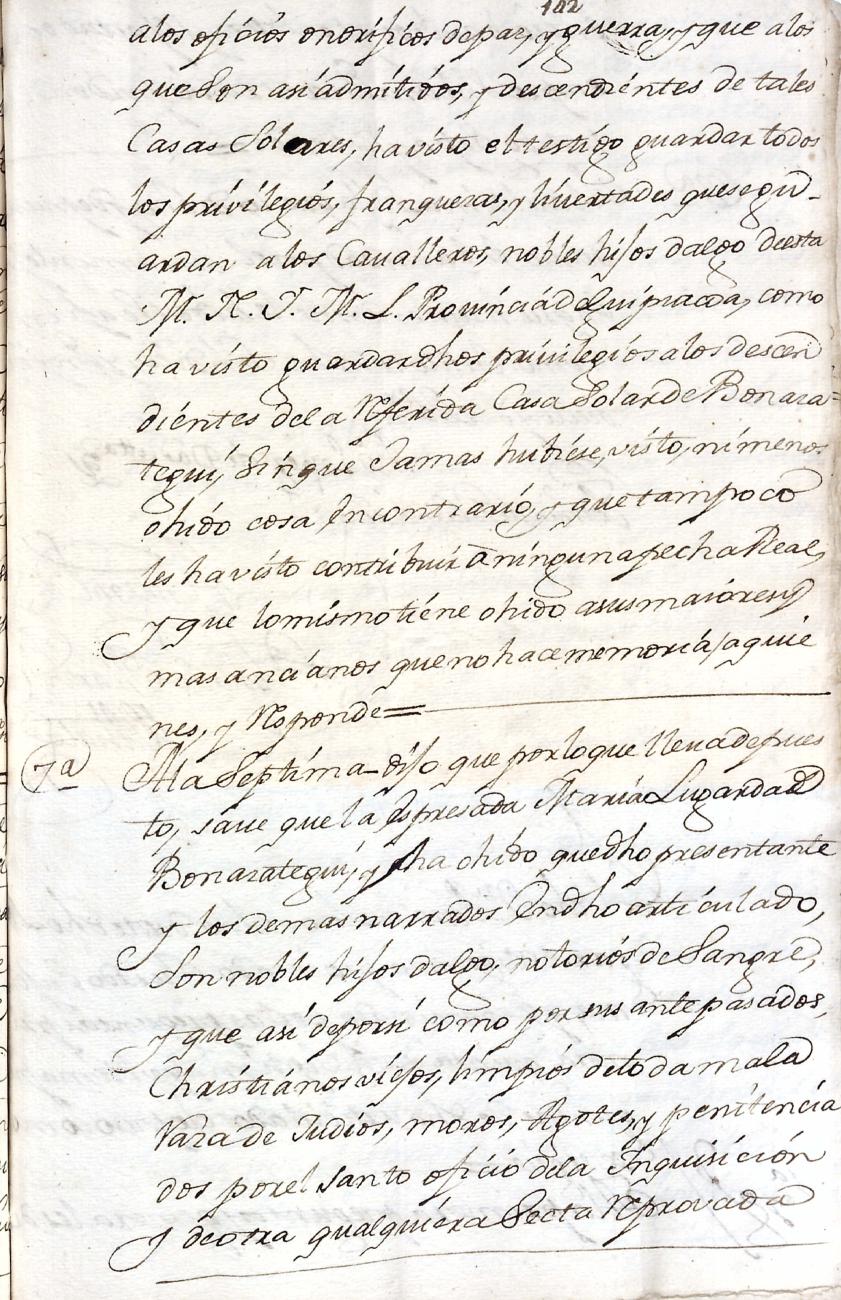 142
alos oficios onorificos depaz, y guerra, y que alos
que son asi admitidos, y descendientes de tales
Casas Solares, ha visto el testigo guardar todos
los privilegios, franquezas, y livertades que se gu-
ardan alos Cavalleros, nobles hijos dalgo de esta
M. N. Y. M. L. Provincia de Guipuzcoa, como
ha visto guardar dhos privilegios alos descen
dientes dela Referida Casa Solar de Bonaza=
tegui, Sin que Jamas hubiese, visto, ni menos
ohido cosa Encontrario, y que tampoco
les ha visto contribuir â ninguna pecha Real,
y que lo mismo tiene ohido asus maiores, y
mas ancianos que no hace memoria, aquie
nes, y Responde=
7ª
Ala Septima dijo que por lo que lleva depues
to, save que la Espresada Maria Lugarda de
Bonazategui, y ha ohido que dho presentante
y los demas narrados En dho articulado,
Son nobles hijos dalgo, notorios de Sangre,
y que asi de por si como por sus antepasados,
Christianos viejos, limpios de toda mala
Raza de Judios, moros, Agotes, y penitencia
dos por el santo oficio dela Inquisicion
y de otra qualquiera Secta Reprovada